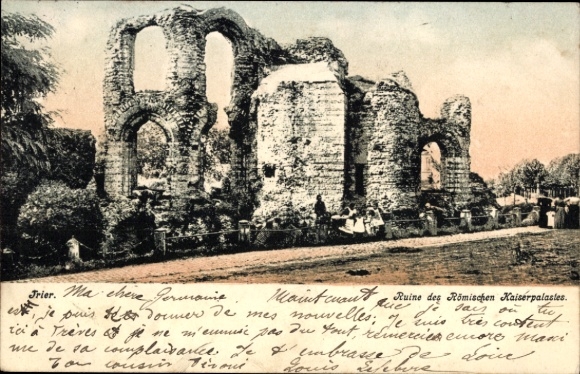 Trier.
Ruine des Römischen Kaiserpalastes.
Ma chère Germaine Maintenant que je sais où tu
est, je puis te donner de mes nouvelles; Je suis très content
ici à Trèves et je ne m'ennuie pas du tout, remercie encore Maxi
me de sa complaisance, Je t'embrasse de loin
Ton cousin Louis Lefebvre